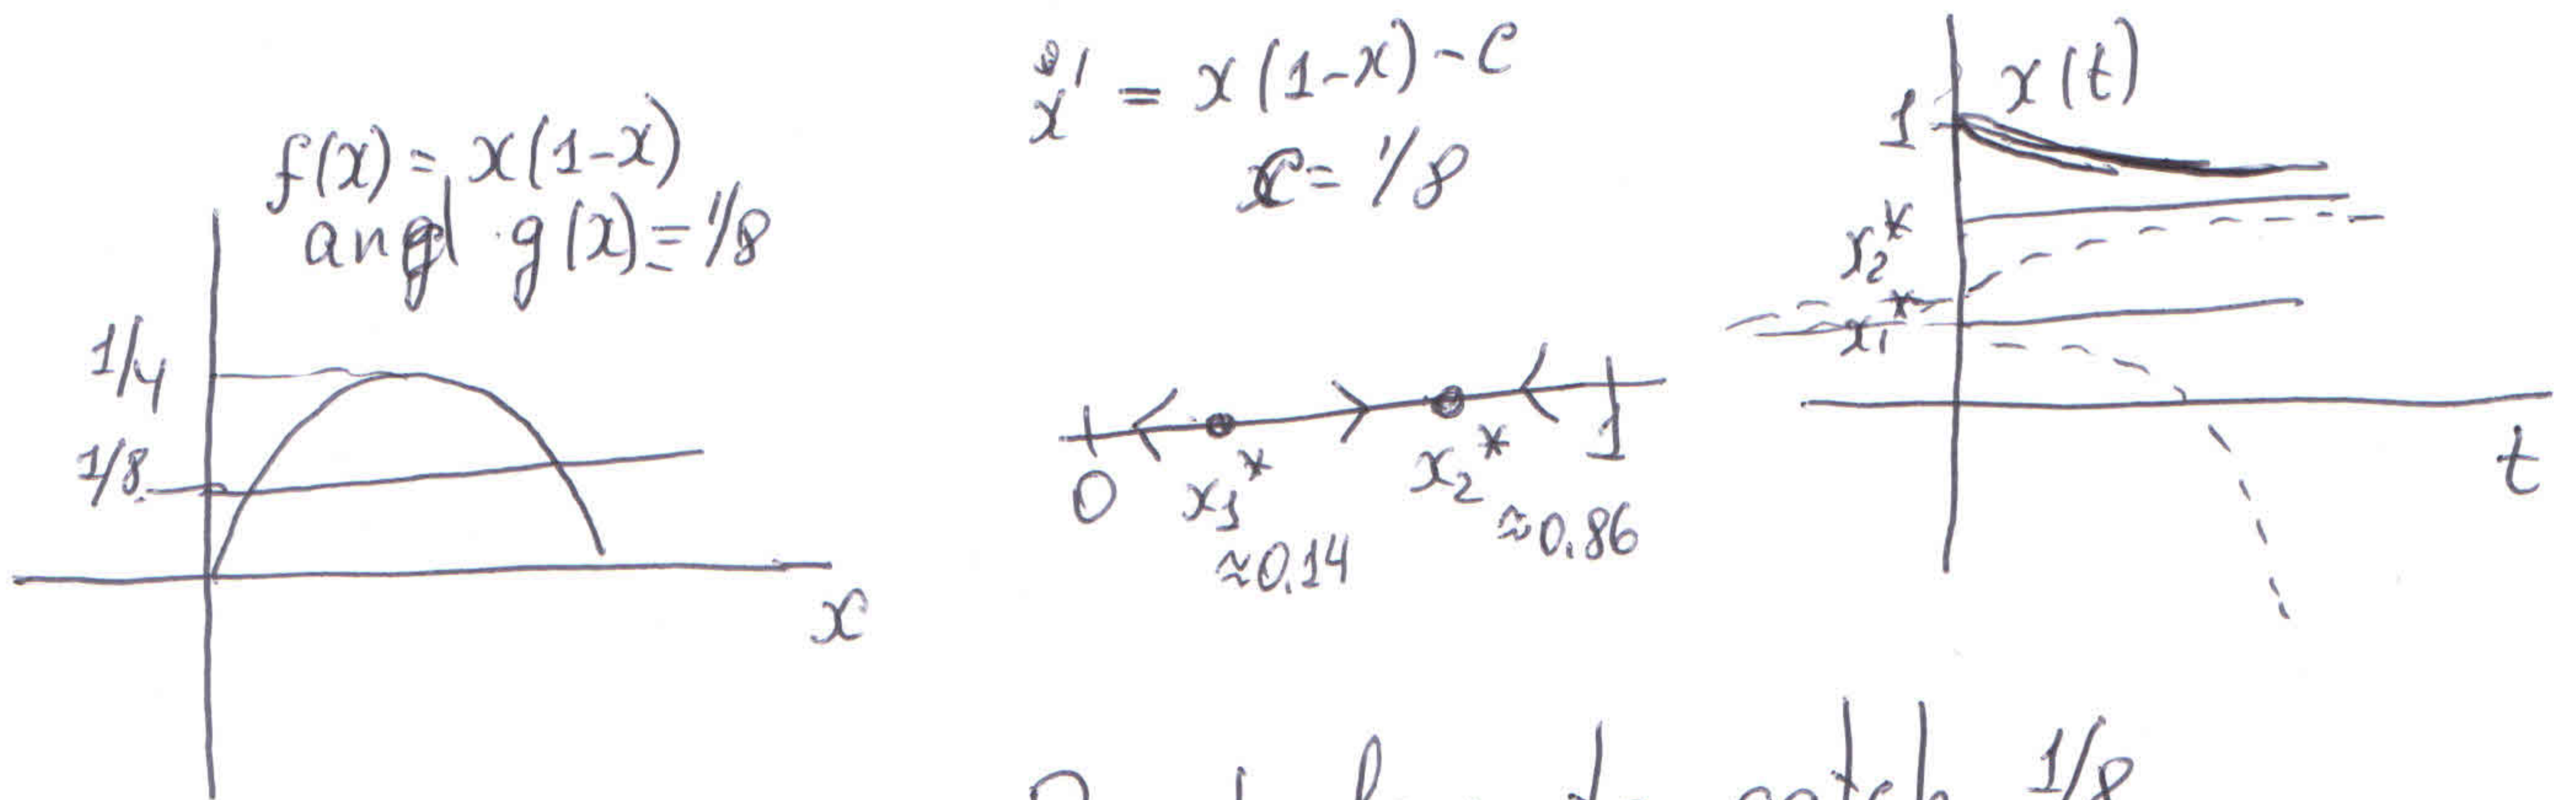 f(x) = x(1-x)
and g(x) = 1/8
1/4
1/8
x
x' = x(1-x) - C
C = 1/8
0 x₁* x₂* 1
≈0.14 ≈0.86
x(t)
1
x₂*
x₁*
t
catch 1/8